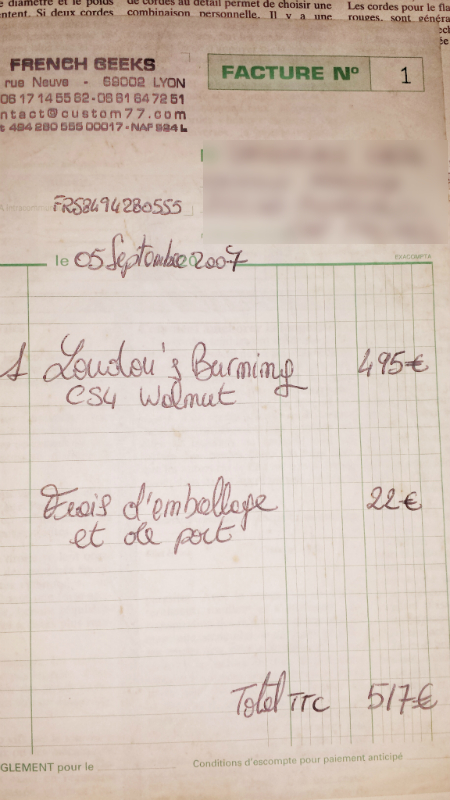 diamètre et le poids
de cordes au détail permet de choisir une
Les cordes pour le fla
Si deux cordes
combinaison personnelle. Il y a une
rouges, sont généra
FRENCH GEEKS
FACTURE Nº 1
rue Neuve - 69002 LYON
06 17 14 55 62 - 06 81 64 72 51
ntact@custom77.com
494 280 555 00017 - NAF 924 L
FR58494280555
le 05 Septembre 2007
EXACOMPTA
1 London's Burning 495€
CS4 Walnut
Frais d'emballage 22€
et de port
Total TTC 517€
GLEMENT pour le
Conditions d'escompte pour paiement anticipé